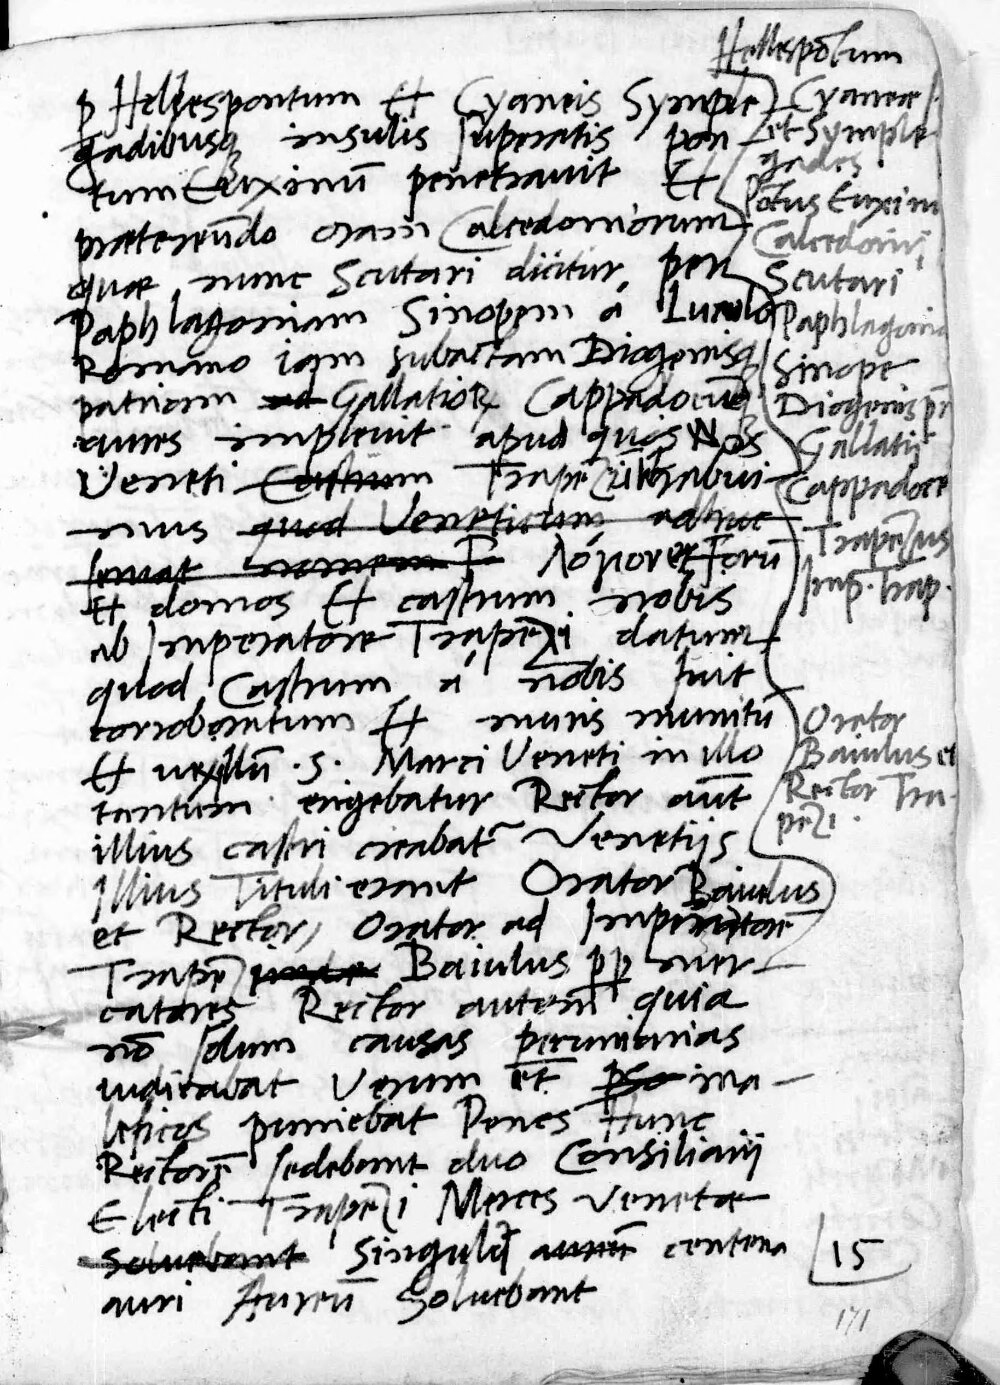 Hellespōtum
p Hellespontum et Cyaneis Symple
gadibusq insulis superatis pon
tum Euxinū penetravit et
prætereūdo oram Calcedoniorum
quæ nunc Scutari dicitur, per
Paphlagoniam Sinopem á Lucullo
Romano iam subactam Diogenisq
patriam ad Gallatiorꝝ Cappadocūq
aures implevit apud quos Nos
Veneti Castrum Trapezūti habui-
mus quod Veneticum adhuc
servat nomen et Forū
et domos et castrum nobis
ab Imperatore Trapezi datum
quod Castrum á nobis fuit
corroboratum et muris munitū
et uexillū .S. Marci Veneti in illo
tantum erigebatur Rector aūt
illius castri creabatr Venetijs
Illius Tituli erant Orator Baiulus
et Rector, Orator ad Imperatorē
Trapez Baiulus pp mer-
catores Rector autem quia
nō solum causas pecuniarias
iudicabat Verum et ma-
leficos puniebat Penes Hunc
Rectorē sedebant duo Consiliarij
Electi Trapezi Merces Venetæ
Solvebant Singula centena
auri Aureū Solvebant
Cyaneæ
et Symple
gades
Pōtus Euxinu
Calcedonij
Scutari
Paphlagonia
Sinope
Diogenis pr
Gallatij
Cappadoce
Trapezus
Imp. Trap.
Orator
Baiulus et
Rector Tra-
pezi.
15
171